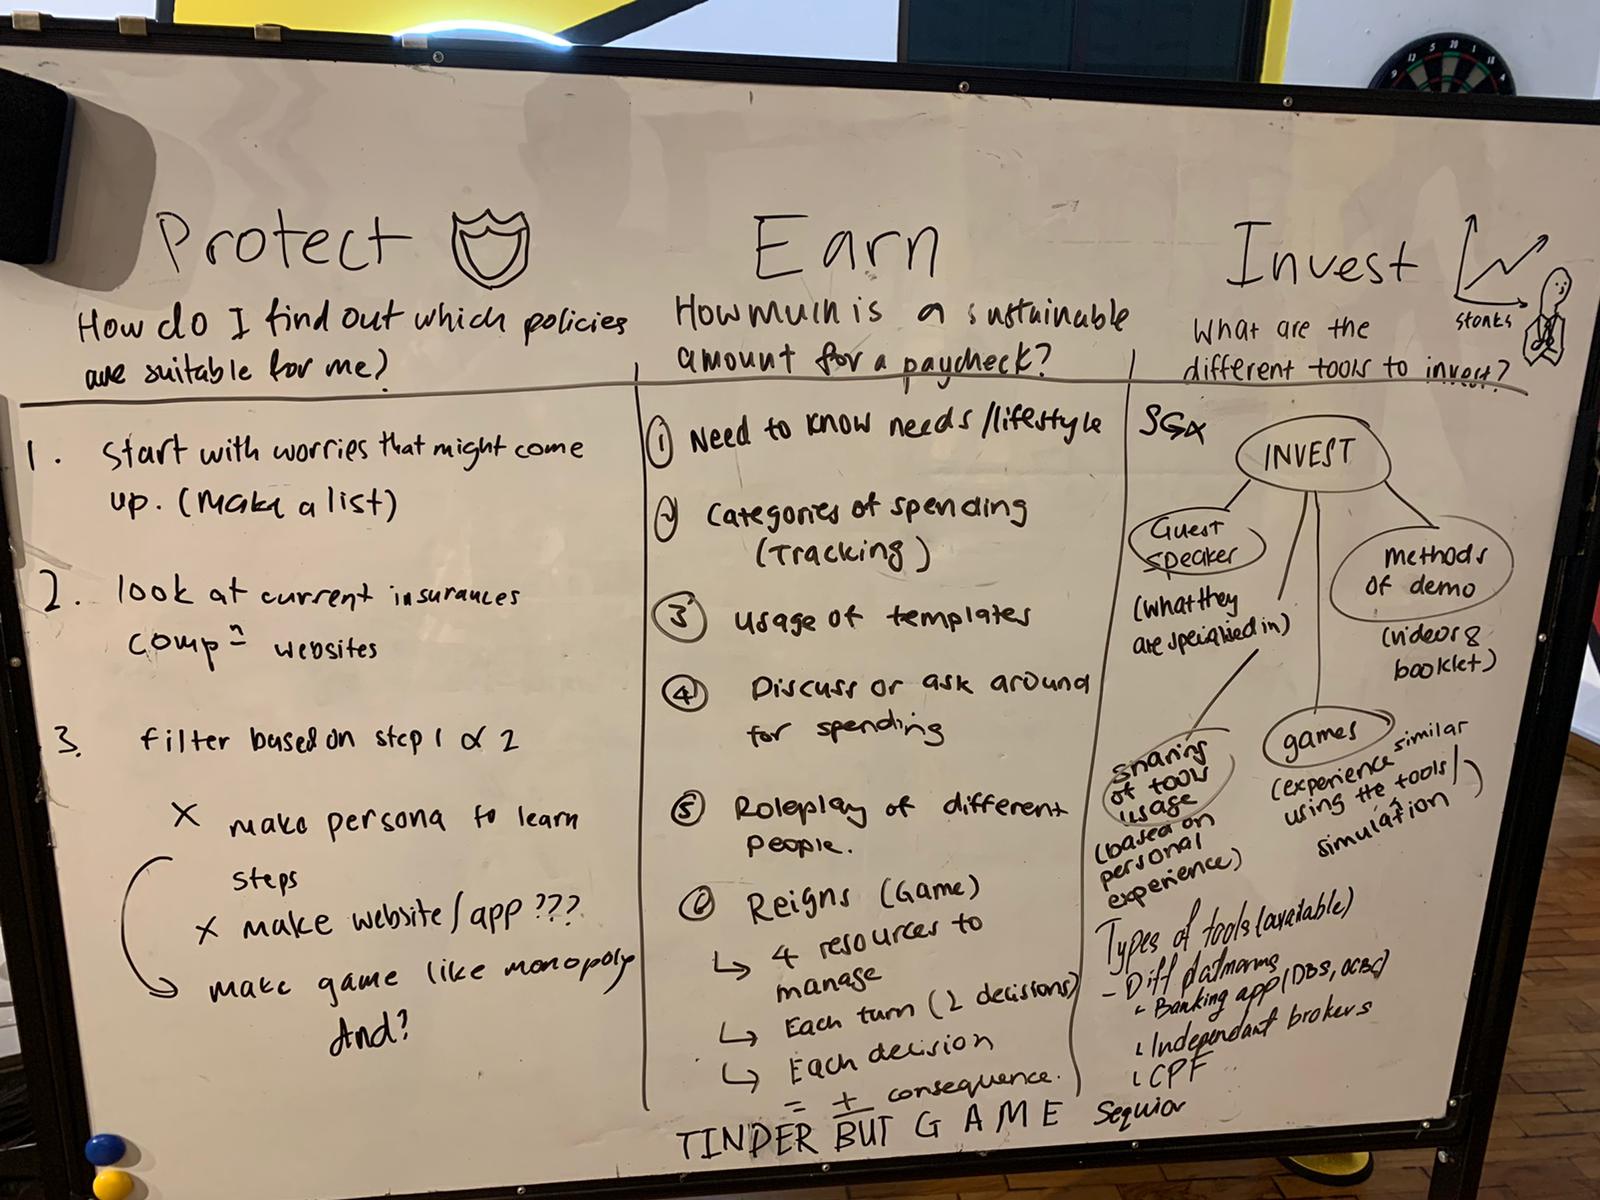 Protect
How do I find out which policies
are suitable for me?
1. Start with worries that might come
up. (Make a list)
2. look at current insurances
compⁿ websites
3. filter based on step 1 & 2
X make persona to learn
steps
X make website/app ???
make game like monopoly
And?
Earn
How much is a sustainable
amount for a paycheck?
① Need to know needs/lifestyle
② Categories of spending
(Tracking)
③ usage of templates
④ Discuss or ask around
for spending
⑤ Roleplay of different
people.
⑥ Reigns (Game)
↳ 4 resources to
manage
↳ Each turn (2 decisions)
↳ Each decision
= ± consequence.
TINDER BUT GAME
Invest
stonks
What are the
different tools to invest?
SGX
INVEST
Guest
speaker
(what they
are specialised in)
methods
of demo
(videos &
booklet)
games
(experience similar
using the tools/
simulation)
sharing
of tools
usage
(based on
personal
experience)
Types of tools (available)
- Diff platforms
- Banking app (DBS, OCBC)
Independant brokers
CPF
12 5 20 1 18 4
9